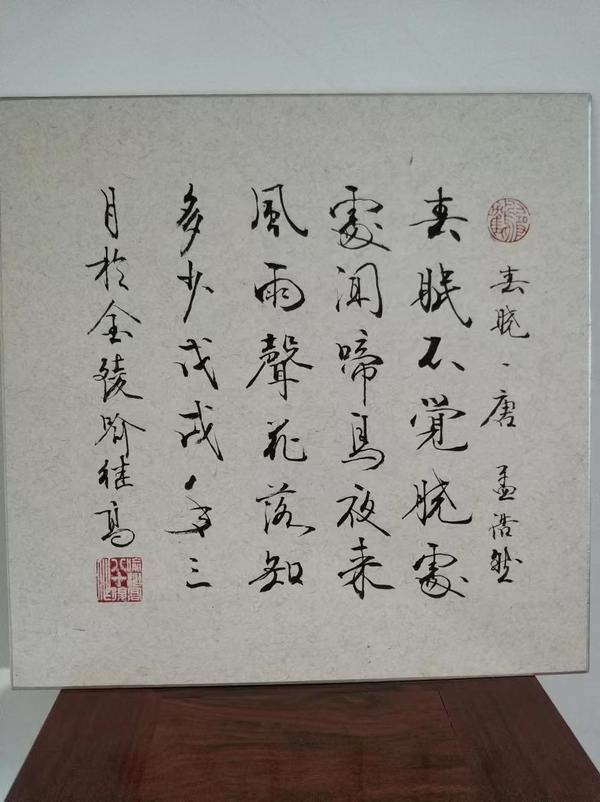 春曉、唐 孟浩然
春眠不覺曉處
處聞啼鳥夜来
風雨聲花落知
多少戊戌年三
月於金陵喻继高